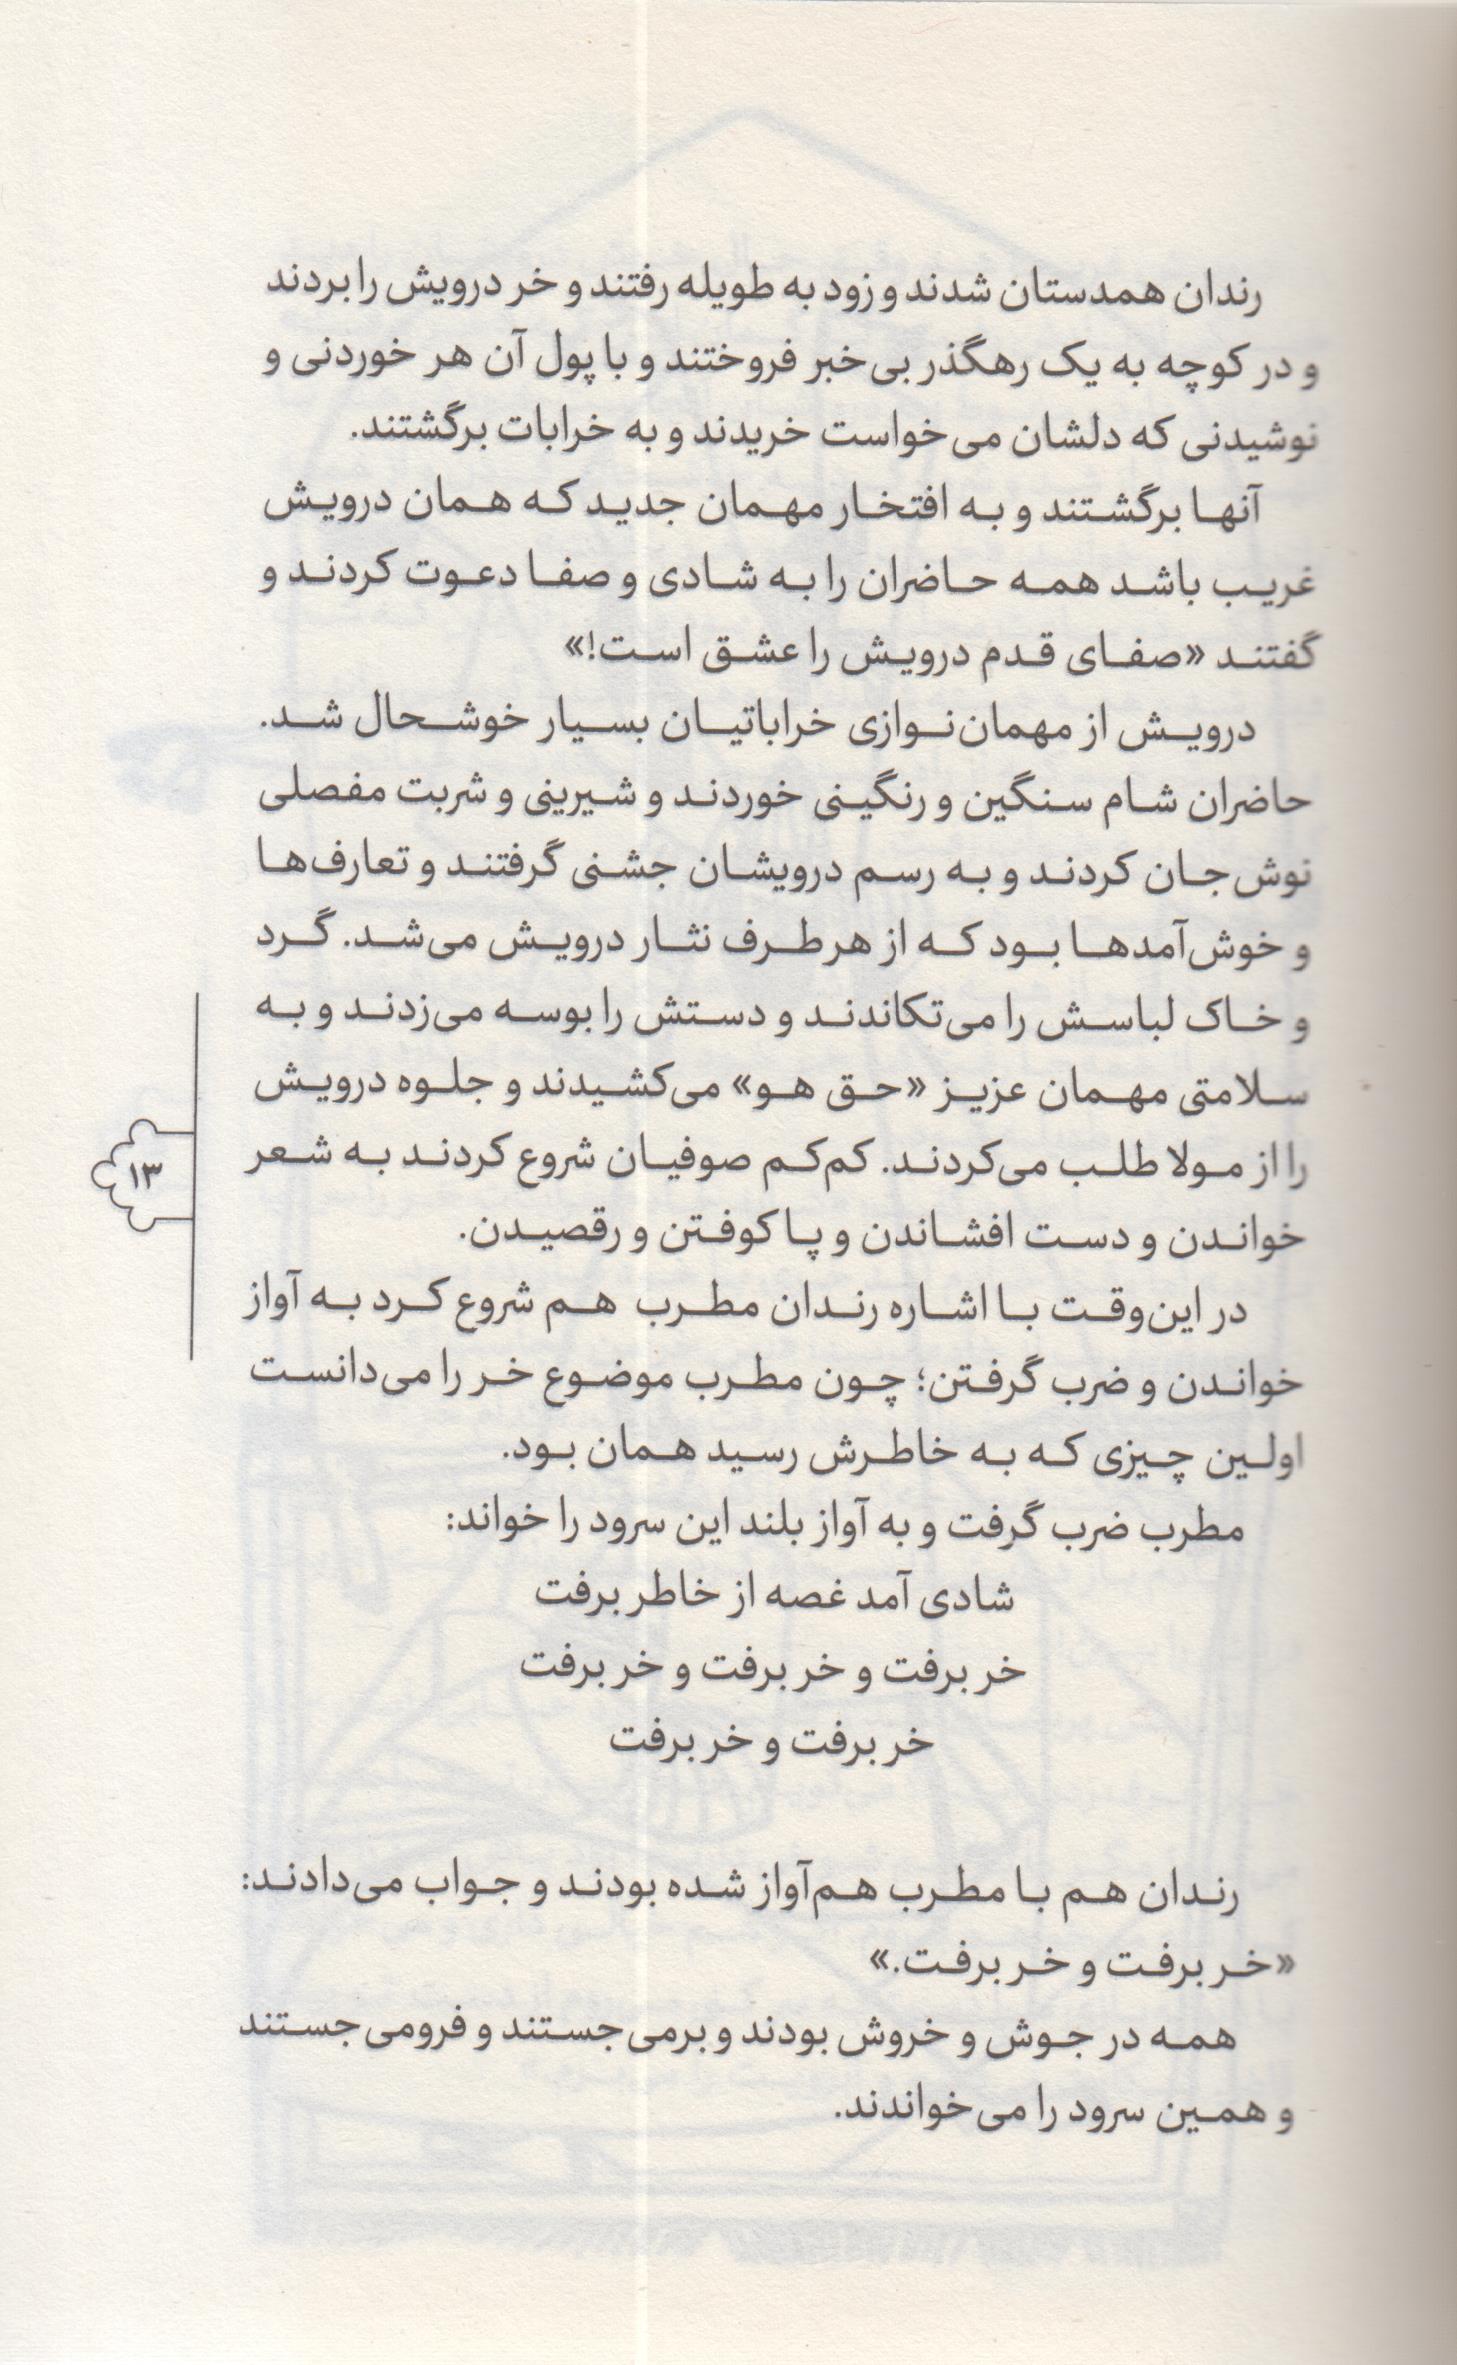 رندان همدستان شدند و زود به طویله رفتند و خر درویش را بردند
و در کوچه به یک رهگذر بی‌خبر فروختند و با پول آن هر خوردنی و
نوشیدنی که دلشان می‌خواست خریدند و به خرابات برگشتند.
آنها برگشتند و به افتخار مهمان جدید که همان درویش
غریب باشد همه حاضران را به شادی و صفا دعوت کردند و
گفتند «صفای قدم درویش را عشق است!»
درویش از مهمان‌نوازی خراباتیان بسیار خوشحال شد.
حاضران شام سنگین و رنگینی خوردند و شیرینی و شربت مفصلی
نوش‌جان کردند و به رسم درویشان جشنی گرفتند و تعارف‌ها
و خوش‌آمدها بود که از هرطرف نثار درویش می‌شد. گرد
و خاک لباسش را می‌تکاندند و دستش را بوسه می‌زدند و به
سلامتی مهمان عزیز «حق هو» می‌کشیدند و جلوه درویش
را از مولا طلب می‌کردند. کم‌کم صوفیان شروع کردند به شعر
خواندن و دست افشاندن و پا کوفتن و رقصیدن.
در این‌وقت با اشاره رندان مطرب هم شروع کرد به آواز
خواندن و ضرب گرفتن؛ چون مطرب موضوع خر را می‌دانست
اولین چیزی که به خاطرش رسید همان بود.
مطرب ضرب گرفت و به آواز بلند این سرود را خواند:
شادی آمد غصه از خاطر برفت
خر برفت و خر برفت و خر برفت
خر برفت و خر برفت
رندان هم با مطرب هم‌آواز شده بودند و جواب می‌دادند:
«خر برفت و خر برفت.»
همه در جوش و خروش بودند و برمی‌جستند و فرومی‌جستند
و همین سرود را می‌خواندند.
۱۳